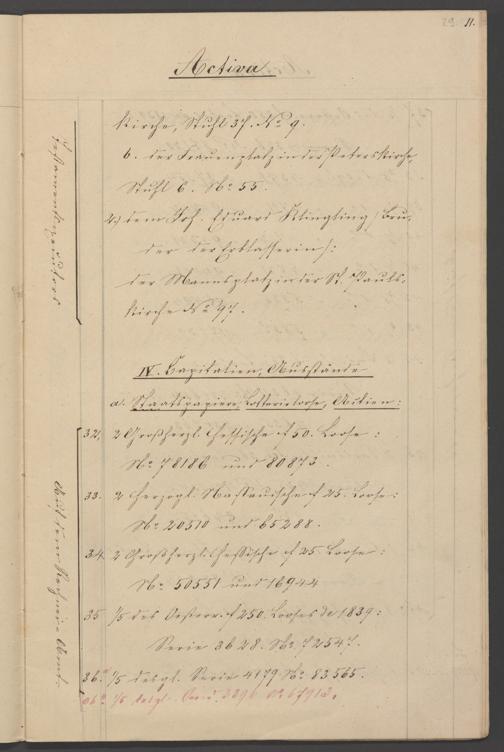 29 11.
Activa
Kirche, Stuhl 37. No 9.
b. der Frauenplatz in der Peterskirche,
Stuhl 6. No 55.
2.) dem Joh. Eduard Klingling (Bru-
der der Erblasserin):
der Mannsplatz in der St. Pauls-
kirche No 97.
IV. Capitalien, Ausstände
a. Staatspapiere, Lotterieloose, Actien:
32. 2 Großherzl. Hessische f 50. Loose:
No 78186 und 80873.
33. 2 Herzogl. Nassauische f 25. Loose:
No 20510 und 65288.
34. 2 Großherzl. Hessische f 25 Loose:
No 50551 und 16944
35 1/5 des Oesterr. f 250. Looses de 1839:
Serie 3628. No 72547.
36a 1/5 desgl. Serie 4179 No 83565.
36b 1/5 desgl. Serie 3396 No 67912.
Testamentsexecutors
Auf dem Rechnei-Amt.